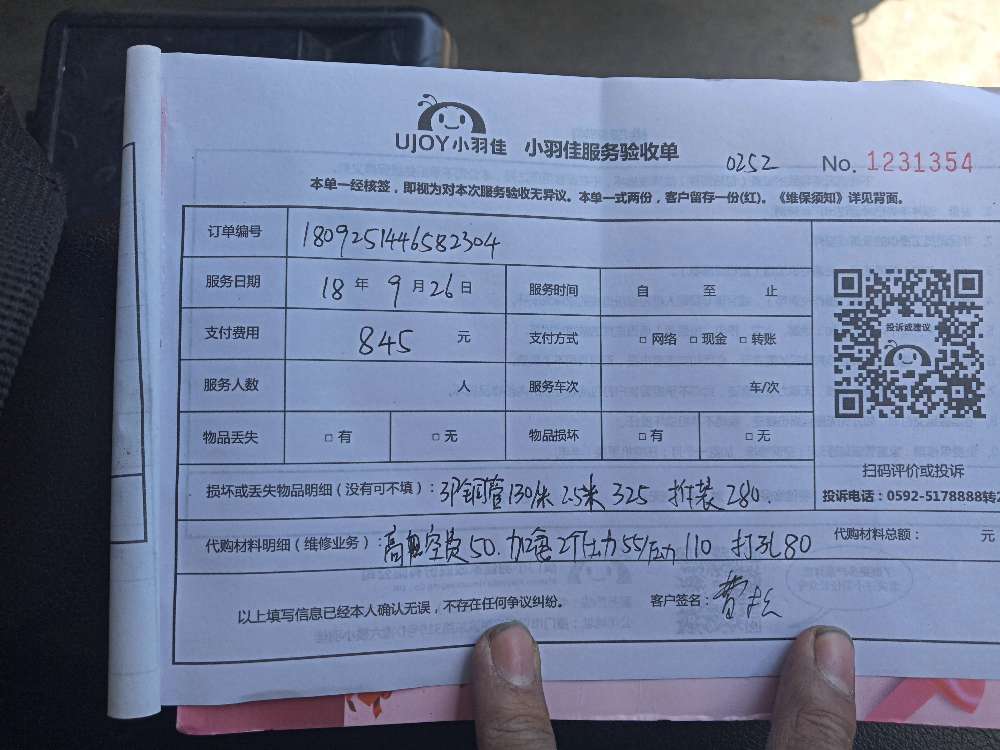 UJOY小羽佳 小羽佳服务验收单 0252 No. 1231354
本单一经核签，即视为对本次服务验收无异议。本单一式两份，客户留存一份(红)。《维保须知》详见背面。
订单编号 1809251446582304
服务日期 18 年 9 月 26 日 服务时间 自 至 止
支付费用 845 元 支付方式 □ 网络 □ 现金 □ 转账
服务人数 人 服务车次 车/次
物品丢失 □ 有 □ 无 物品损坏 □ 有 □ 无
投诉或建议
扫码评价或投诉
投诉电话：0592-5178888转2
损坏或丢失物品明细（没有可不填）：3P铜管130/米 2.5米 325 拆装 280
代购材料明细（维修业务）：高真空费50. 55/ 110 打孔80 代购材料总额： 元
以上填写信息已经本人确认无误，不存在任何争议纠纷。 客户签名：